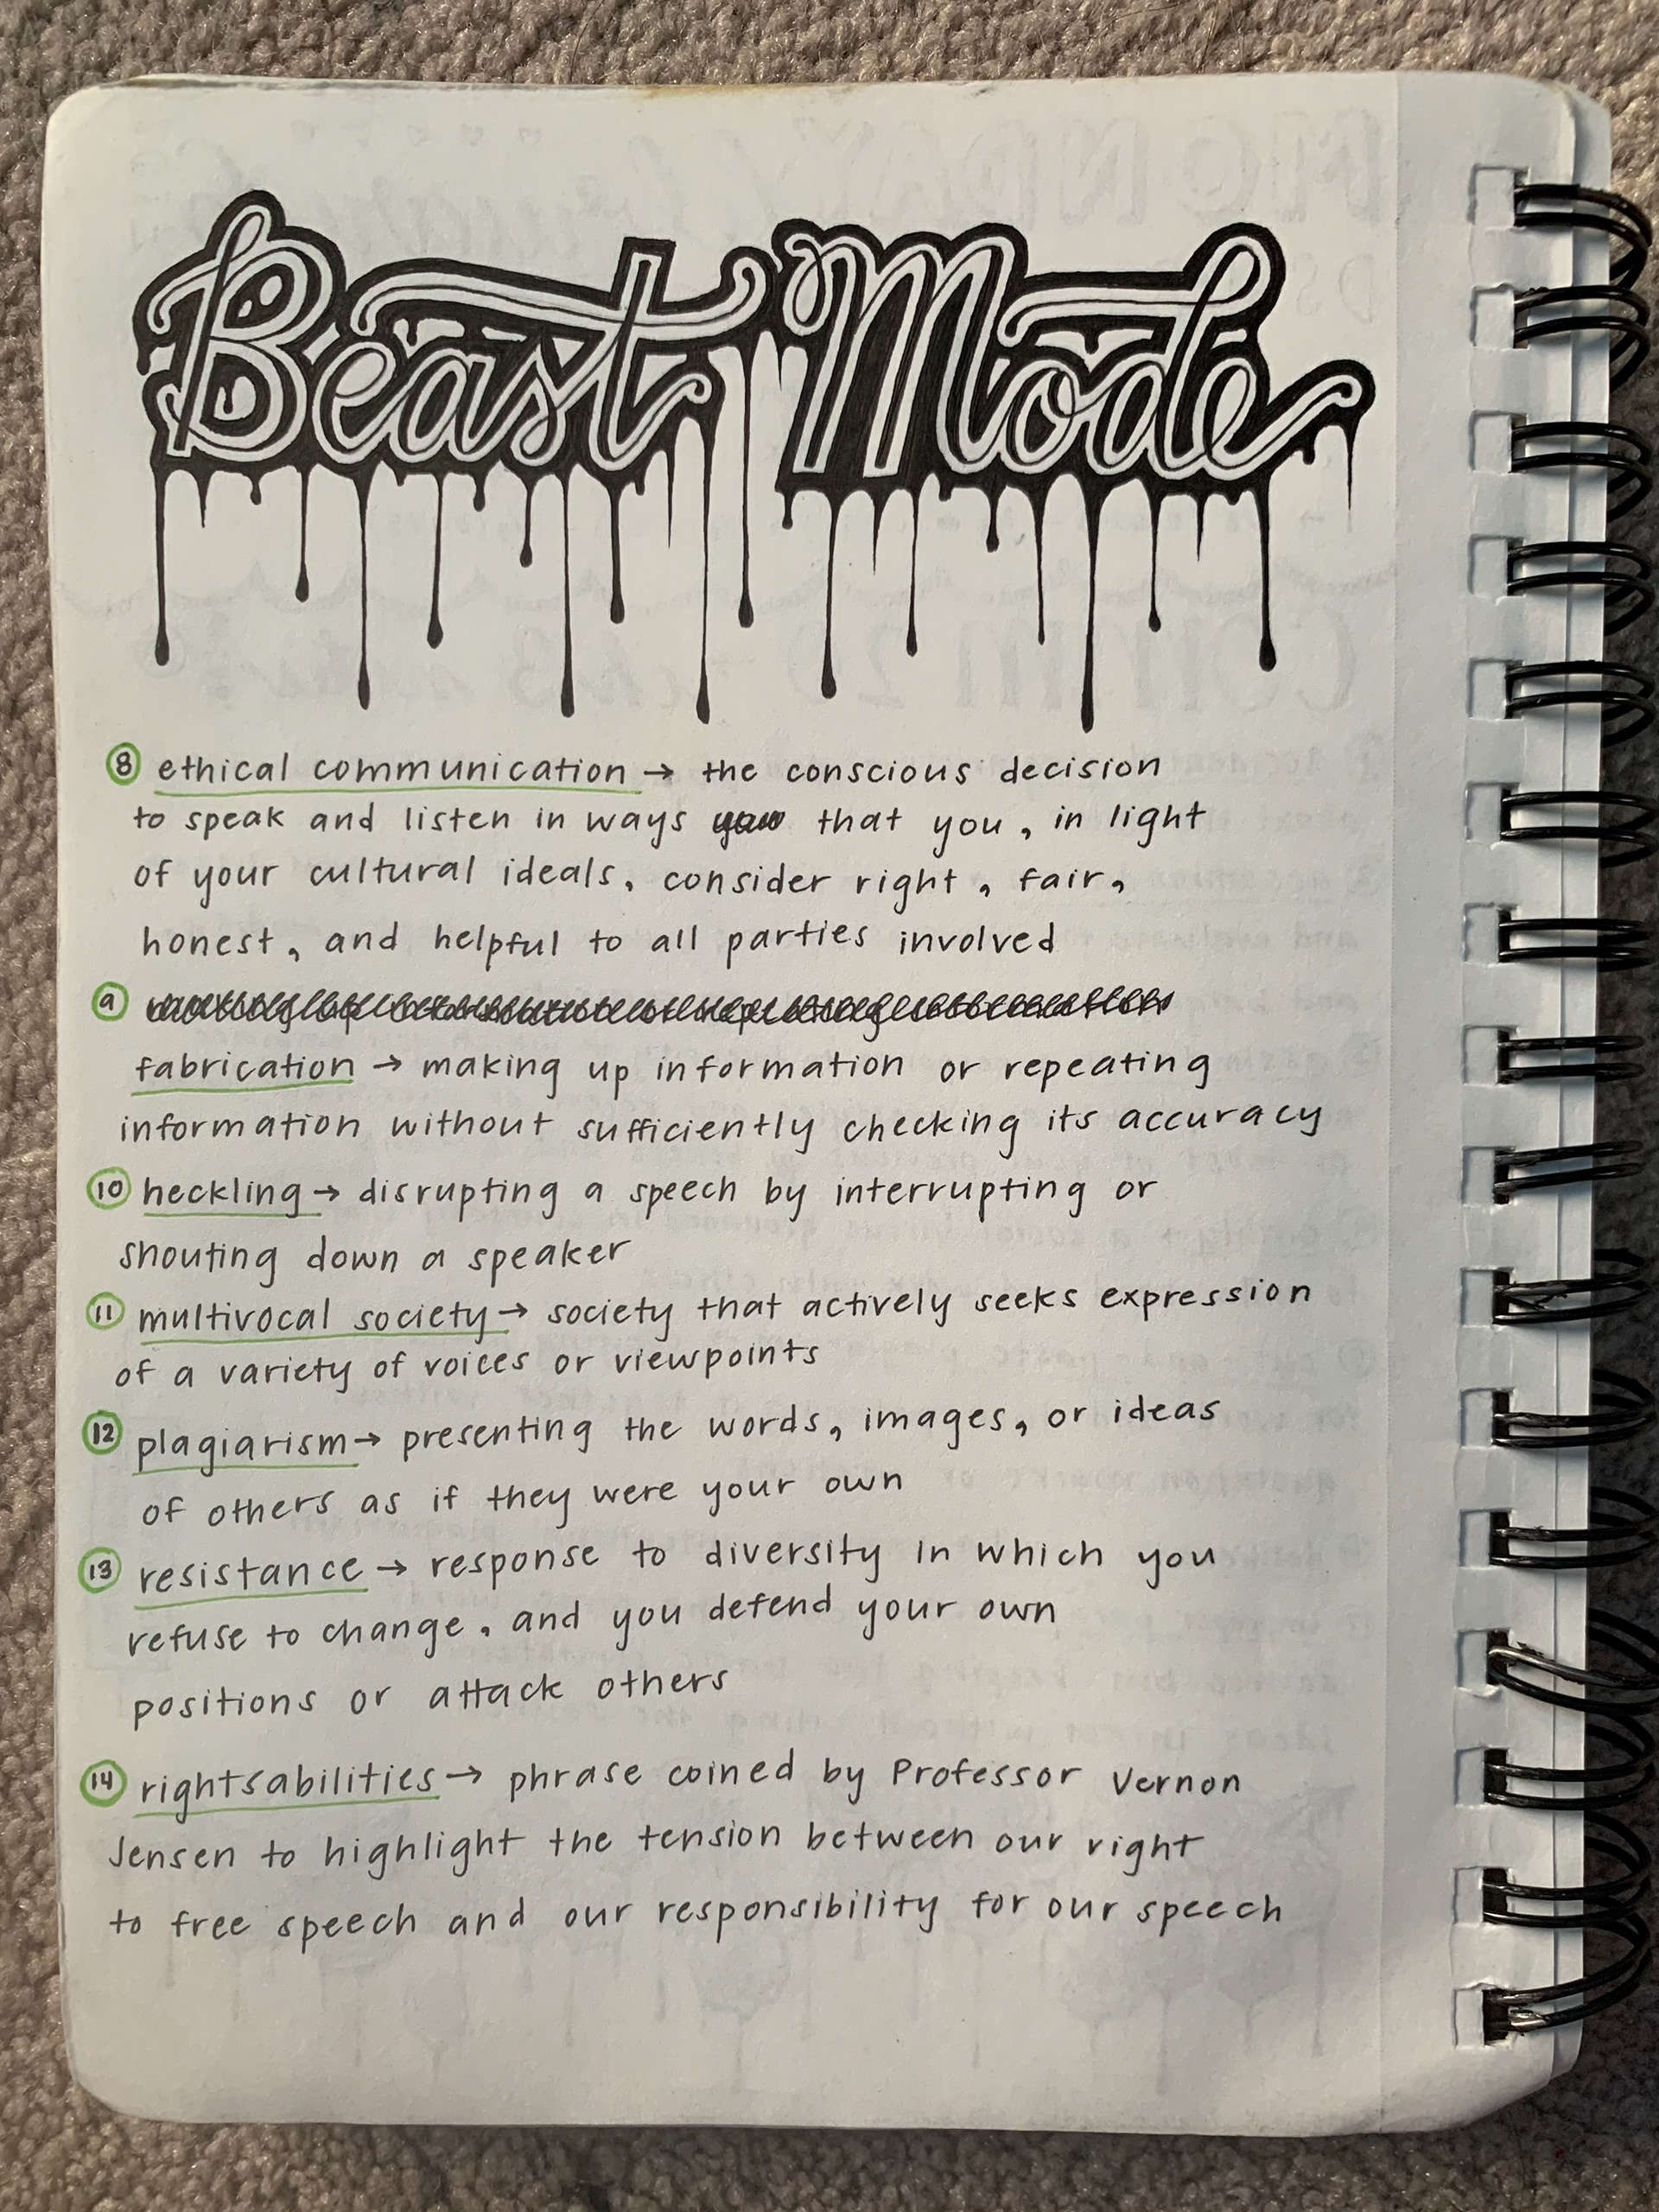 Beast Mode
8 ethical communication → the conscious decision
to speak and listen in ways that you, in light
of your cultural ideals, consider right, fair,
honest, and helpful to all parties involved
9
fabrication → making up information or repeating
information without sufficiently checking its accuracy
10 heckling → disrupting a speech by interrupting or
shouting down a speaker
11 multivocal society → society that actively seeks expression
of a variety of voices or viewpoints
12 plagiarism → presenting the words, images, or ideas
of others as if they were your own
13 resistance → response to diversity in which you
refuse to change, and you defend your own
positions or attack others
14 rightsabilities → phrase coined by Professor Vernon
Jensen to highlight the tension between our right
to free speech and our responsibility for our speech